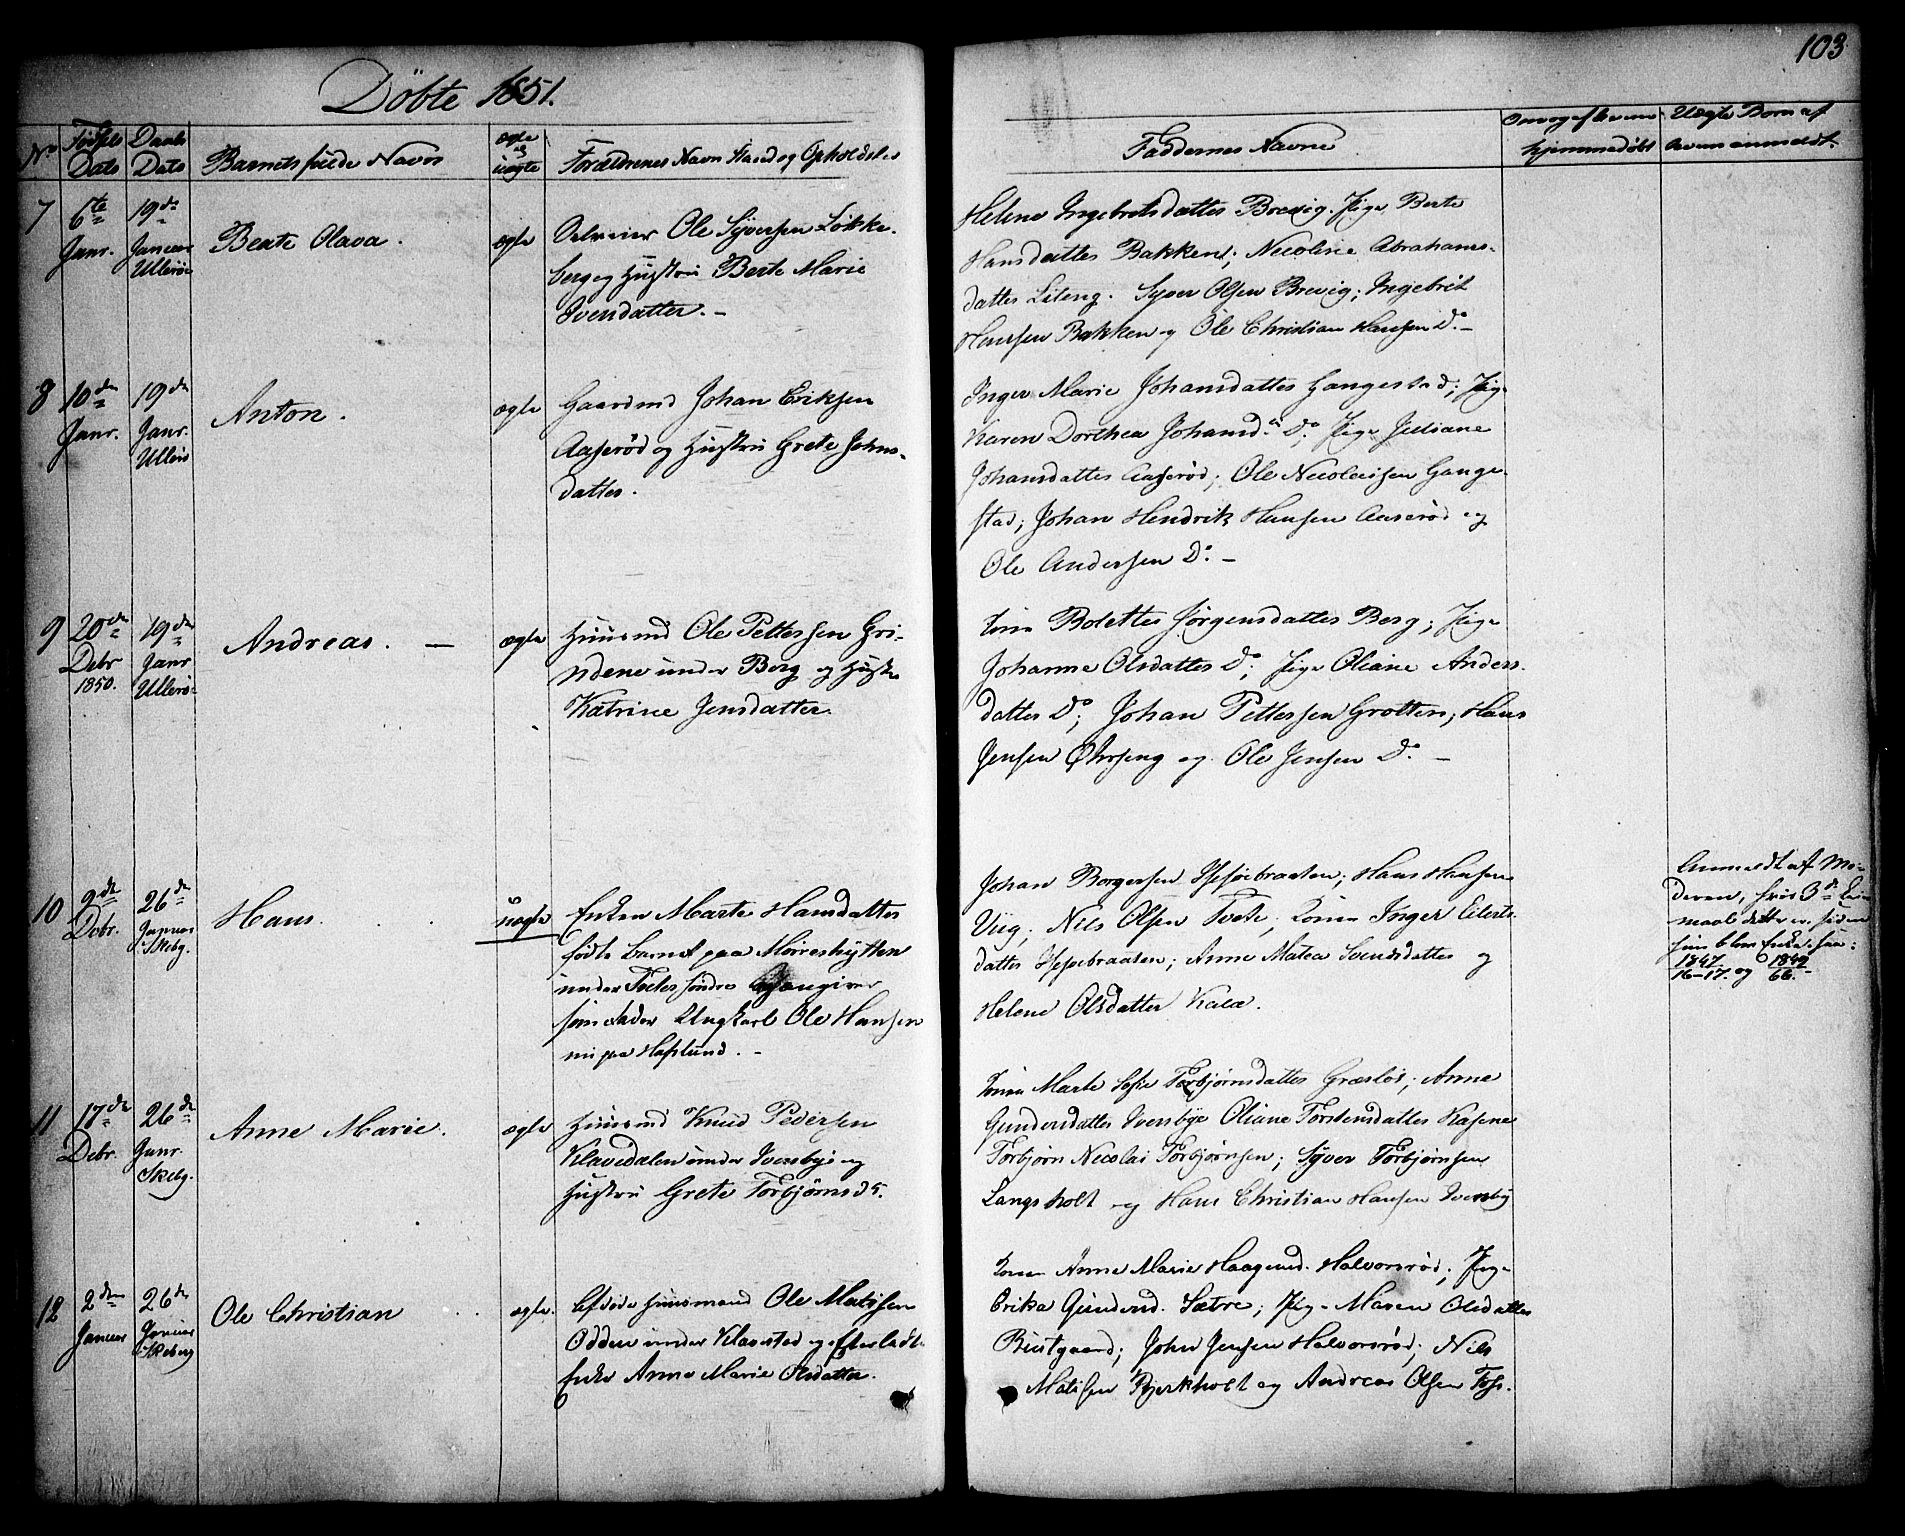 103
Döbte 1851.
No Fødsels Dato Daabs Dato Barnets fulde Navn ægte og uægte Forældrenes Navn Stand og Opholdsted
Faddernes Navne
hjemmedøbt
Uægte Børn af
7 6te Janr. 19de Januar Ullerøe
Berte Olava. ægte
Ole Syversen Løkke-
berg og Hustru Berte Marie
Svendatter. -
Helene Ingebretsdatter Brevig. Pige Berte
Hansdatter Bakken; Nicoline Abrahams-
datter Lileng. Syver Olsen Brevig; Ingebrit
Hansen Bakken og Ole Christian Hansen Do. -
8 10de Janr. 19de Janr. Ullerø
Anton. ægte
Gaardmd Johan Eriksen
Aaserød og Hustru Grete Johns-
datter.
Inger Marie Johansdatter Hangestad; Pige
Karen Dorthea Johansd.r Do; Pige Juliane
Johansdatter Aaserød; Ole Nicolaisen Hange-
stad; Johan Hendrik Hansen Aaserød og
Ole Andersen Do. -
9 20de Debr 1850. 19de Janr Ullerø
Andreas. - ægte
Huusmd Ole Pettersen Gri-
ndene under Berg og Hustr
Katrine Jensdatter.
Kone Bolette Jørgensdatter Berg; Pige
Johanne Olsdatter Do; Pige Oliane Anders-
datter Do; Johan Pettersen Grotten; Hans
Jensen og Ole Jensen Do. -
10 9de Debr. 26de Januar Skebg.
Hans. uægte
Enken Marte Hansdatter
fødte Barnet paa Mørreshytten
under Tvete søndre angiver
som Fader Ungkarl Ole Hansen
nu paa Haslund. -
Johan Borgersen Hessebraaten; Hans Hansen
Viig; Nils Olsen Tvete; Kone Inger Eilerts-
datter Hessebraaten; Anne Matea Svendsdatter og
Helene Olsdatter Kala.
Anmeldt af Mo-
deren, hvis 3de Lei-
maal dette er, siden
hun blev Enke. saa:
1847 16-17. og 1849 66. -
11 17de Debr. 26de Janr. Skebg.
Anne Marie. ægte
Huusmd Knud Pedersen
Klavedalen under Iversbye og
Hustru Grete Torbjørnsdr.
Kone Marte Sofie Torbjørnsdatter Græsløs; Anne
Gundersdatter Iversbye Oliane Torstensdatter Kasene
Torbjørn Nicolai Torbjørnsen; Syver Torbjørnsen
Langsholt og Hans Christian Hansen Iversby
12 2den Januar 26de Januar Skebeg
Ole Christian ægte.
Afdøde Huusmand Ole Matisen
Odden under Klavestad og efterladte
Enke Anne Marie Olsdatter.
Kone Anne Marie Haagensd. Halvorsrød; Pige
Erika Gundersd. Sætre; Pige Maren Olsdatter
Bustgaard; John Jensen Halvorsrød; Nils
Matisen Bjerkholt og Andreas Olsen Foss.